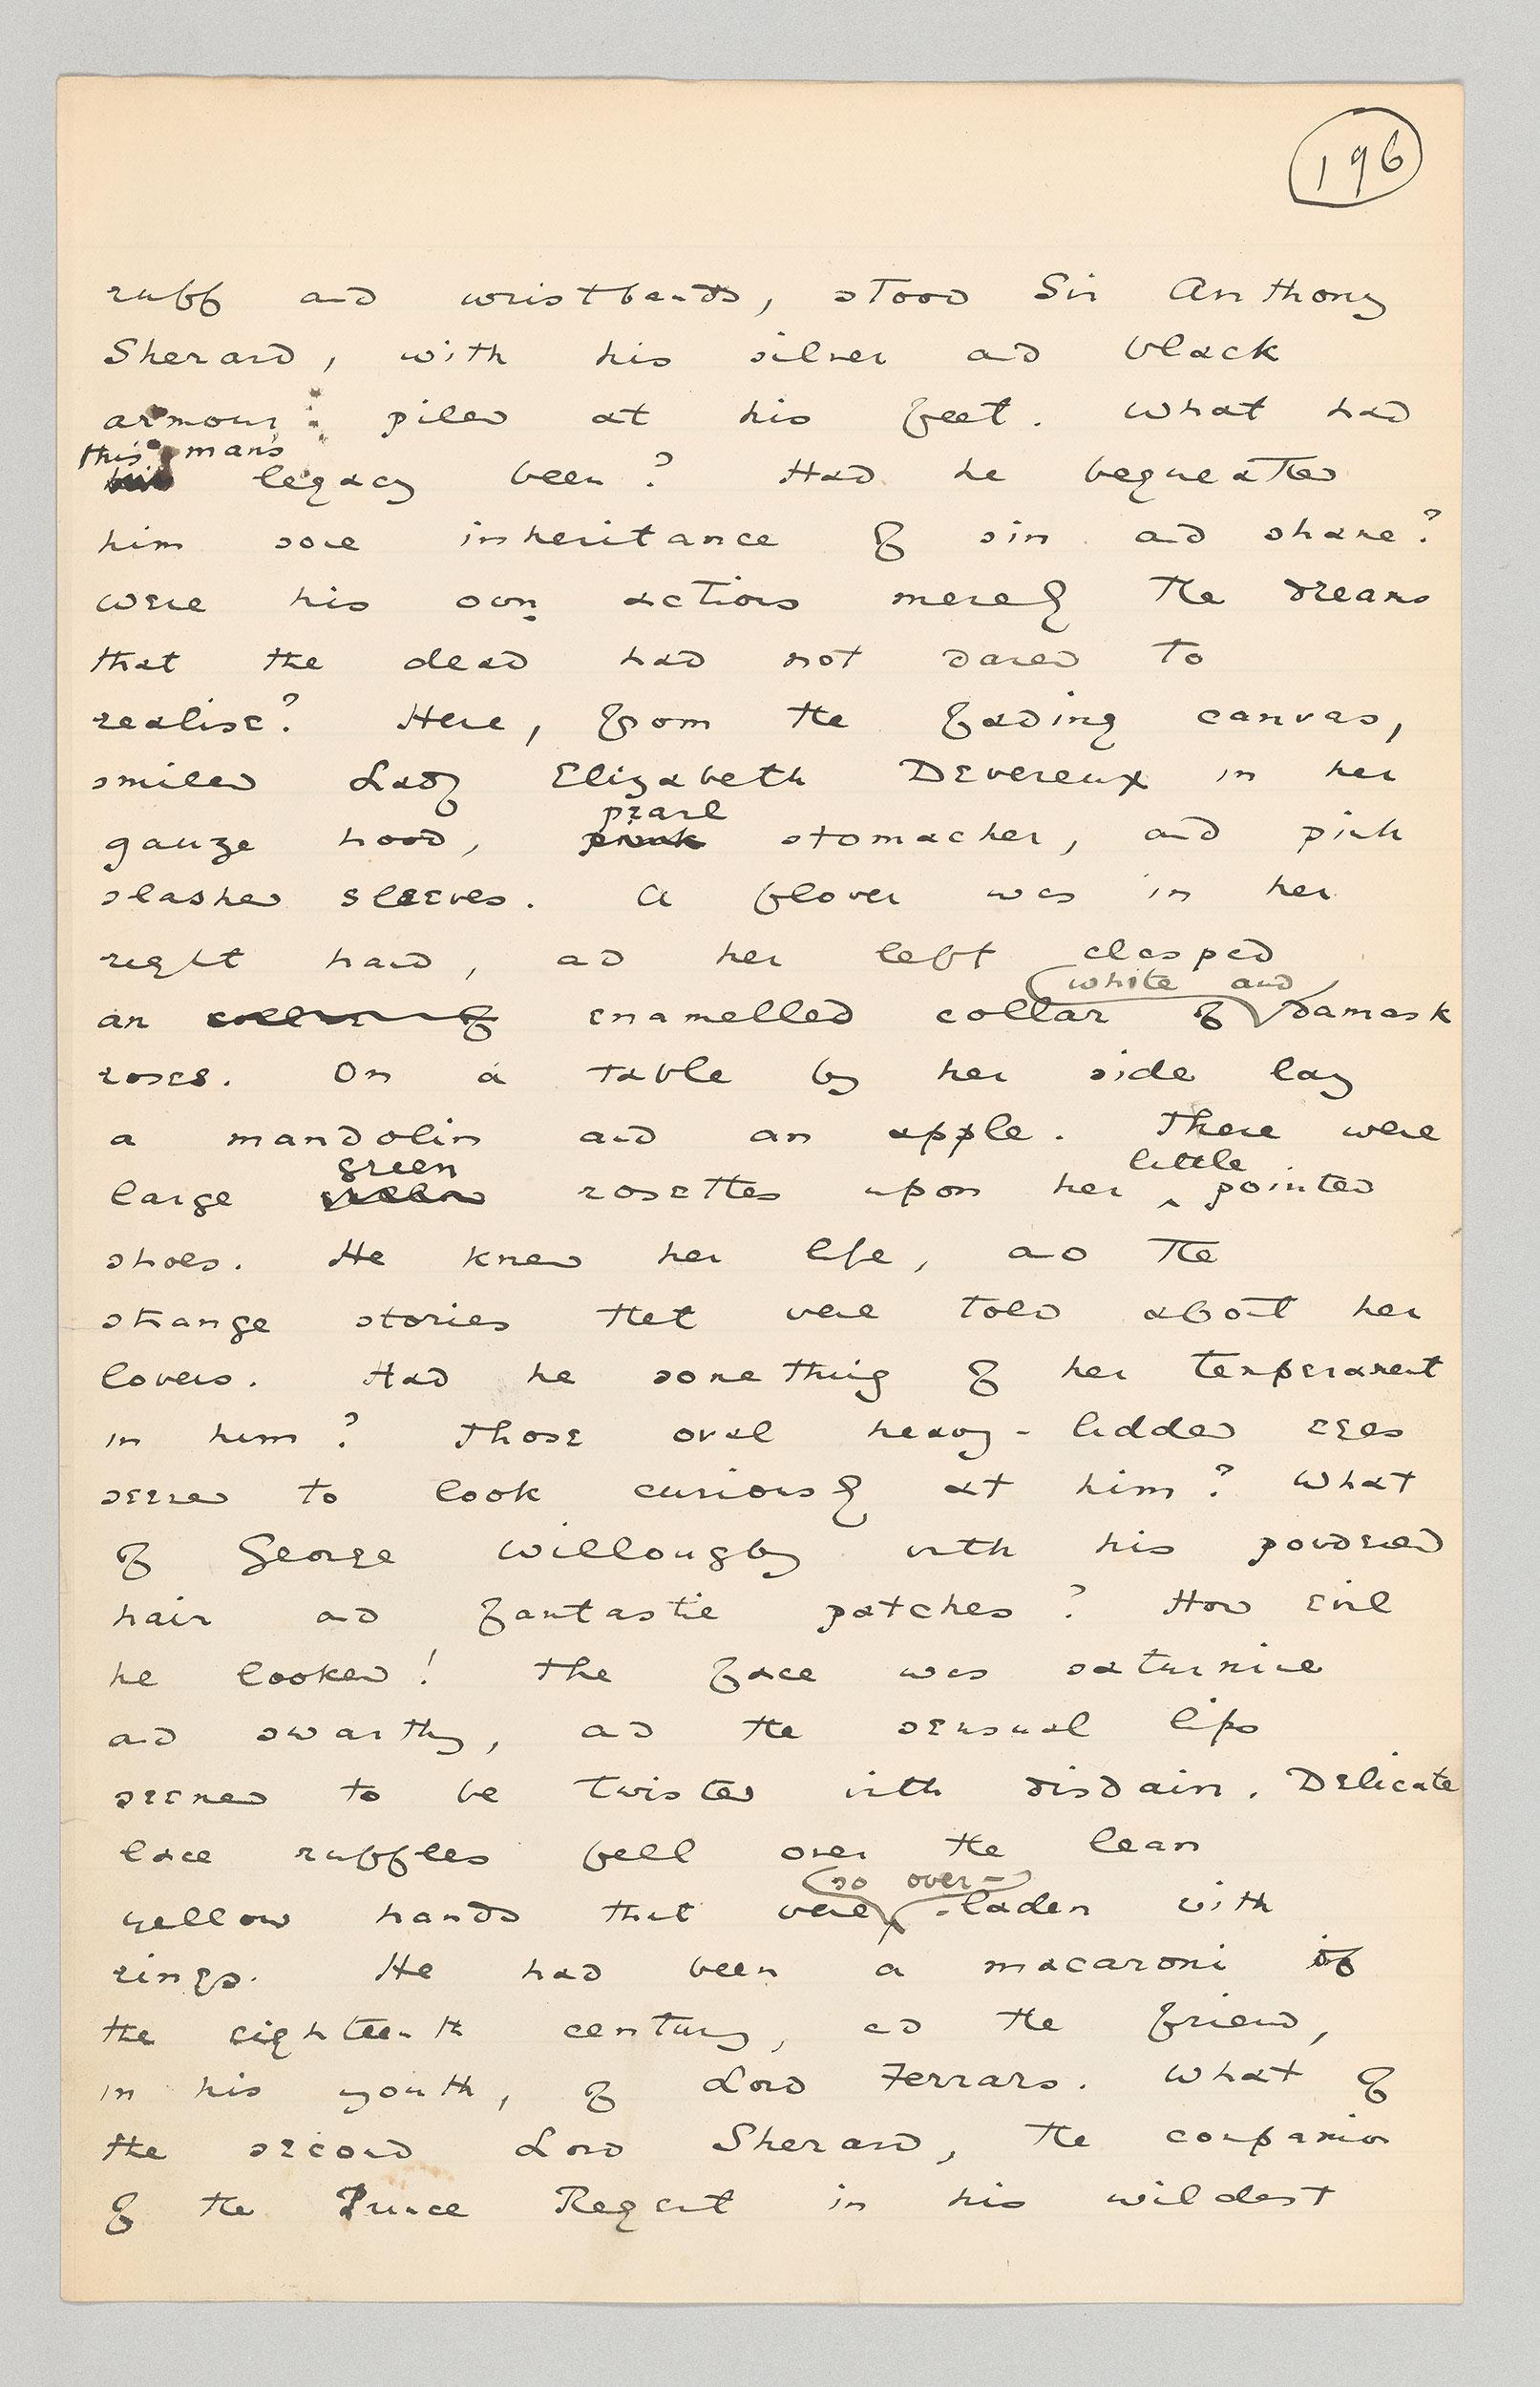 196
ruff and wristbands, stood Sir Anthony
Sherard, with his silver and black
armour piled at his feet. What had
this man's
his legacy been? Had he bequeathed
him some inheritance of sin and shame?
Were his own actions merely the dreams
that the dead had not dared to
realise? Here, from the fading canvas,
smiled Lady Elizabeth Devereux in her
pearl
gauze hood, pink stomacher, and pink
slashed sleeves. A flower was in her
right hand, and her left clasped
white and
an collar of enamelled collar of damask
roses. On a table by her side lay
a mandolin and an apple. There were
green little
large yellow rosettes upon her ^ pointed
shoes. He knew her life, and the
strange stories that were told about her
lovers. Had he something of her temperament
in him? Those oval heavy-lidded eyes
seemed to look curiously at him? What
of George Willougby with his powdered
hair and fantastic patches? How evil
he looked! The face was saturnine
and swarthy, and the sensual lips
seemed to be twisted with disdain. Delicate
lace ruffles fell over the lean
so over-
yellow hands that were -laden with
rings. He had been a macaroni of
the eighteenth century, and the friend,
in his youth, of Lord Ferrars. What of
the second Lord Sherard, the companion
of the Prince Regent in his wildest